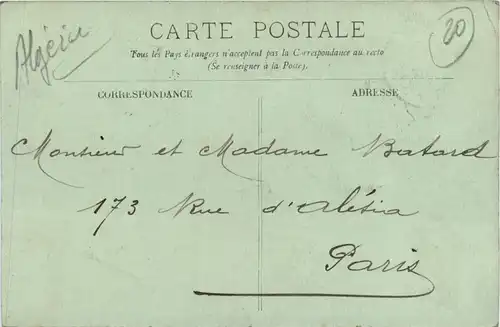 Algérie
CARTE POSTALE
20
Tous les Pays étrangers n'acceptent pas la Correspondance au recto
(Se renseigner à la Poste).
CORRESPONDANCE
ADRESSE
Monsieur et Madame Batard
173 Rue d'Alésia
Paris